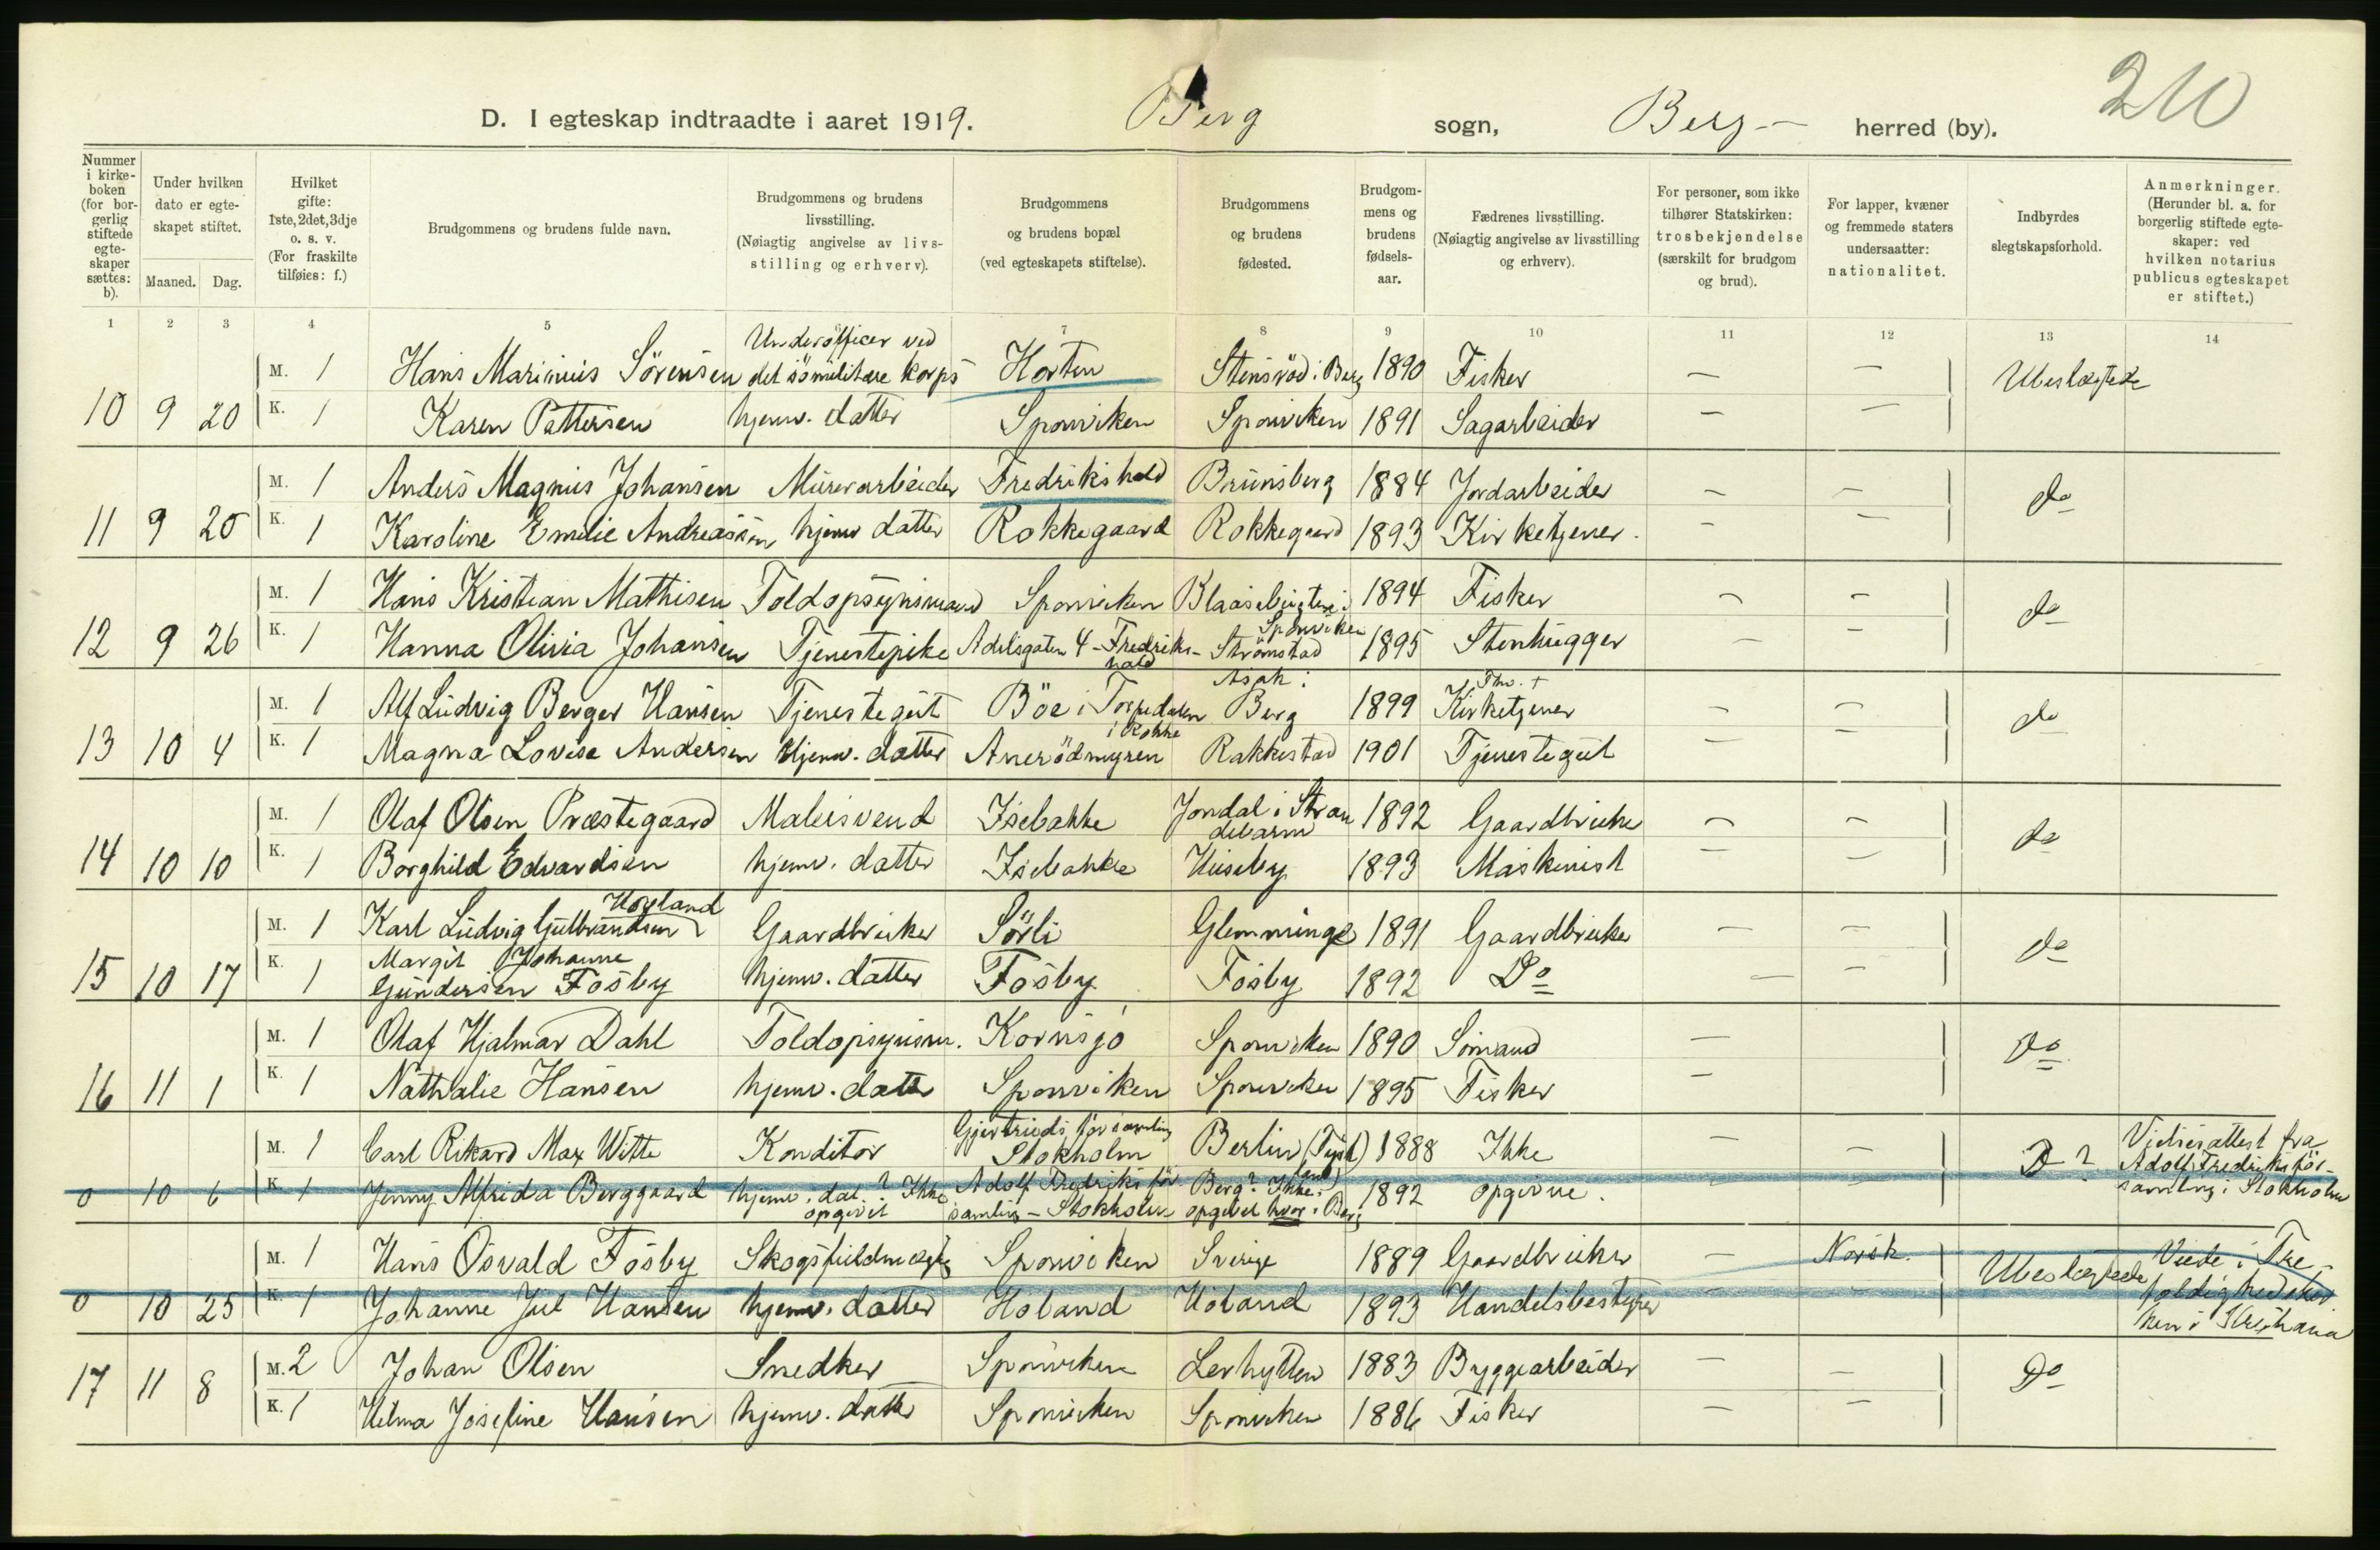 210
D. I egteskap indtraadte i aaret 1919. Berg sogn, Berg herred (by).
Nummer i kirke-boken (for bor-gerlig stiftede egte-skaper sættes: b).
Under hvilken dato er egte-skapet stiftet.
Maaned. Dag.
Hvilket gifte: 1ste, 2det, 3dje o. s. v. (For fraskilte tilføies: f.)
Brudgommens og brudens fulde navn.
Brudgommens og brudens livsstilling. (Nøiagtig angivelse av livs-stilling og erhverv).
Brudgommens og brudens bopæl (ved egteskapets stiftelse).
Brudgommens og brudens fødested.
Brudgom-mens og brudens fødsels-aar.
Fædrenes livsstilling. (Nøiagtig angivelse av livsstilling og erhverv).
For personer, som ikke tilhører Statskirken: trosbekjendelse (særskilt for brudgom og brud).
For lapper, kvæner og fremmede staters undersaatter: nationalitet.
Indbyrdes slegtskapsforhold.
Anmerkninger. (Herunder bl. a. for borgerlig stiftede egte-skaper: ved hvilken notarius publicus egteskapet er stiftet.)
1 2 3 4 5 7 8 9 10 11 12 13 14
M. 1 Hans Marinius Sörensen Underofficer ved det sömilitære korps Horten Stensröd i Berg 1890 Fisker — — Ubeslegtede
10 9 20 K. 1 Karen Pettersen hjemv. datter Sponviken Sponviken 1891 Sagarbeider — —
M. 1 Anders Magnus Johansen Murerarbeider Fredrikshald Brunsberg 1884 Jordarbeider — — do
11 9 20 K. 1 Karoline Emilie Andreassen hjemv datter Rokkegaard Rokkegaard 1893 Kirketjener. — —
M. 1 Hans Kristian Mathisen Toldopsynsmand Sponviken Blaasebugten i Sponviken 1894 Fisker — — do
12 9 26 K. 1 Hanna Olivia Johansen Tjenestepike Adelsgaten 4 - Fredriks-hald Strömstad 1895 Stenhugger — —
M. 1 Alf Ludvig Berger Hansen Tjenestegut Böe i Torpedalen i Rokke Asak i Berg 1899 Fhv. + Kirketjener — — do
13 10 4 K. 1 Magna Lovise Andersen Hjemv. datter Anerödmyren Rakkestad 1901 Tjenestegut — —
M. 1 Olaf Olsen Præstegaard Malersvend Isebakke Jondal i Stran debarm 1892 Gaardbruker — — do
14 10 10 K. 1 Borghild Edvardsen hjemv. datter Isebakke Huseby 1893 Maskinist — —
M. 1 Karl Ludvig Gulbrandsen Hogland Gaardbruker Sörli Glemminge 1891 Gaardbruker — — do
15 10 17 K. 1 Margit Johanne Gundersen Fosby hjemv. datter Fosby Fosby 1892 Do — —
M. 1 Olaf Hjalmar Dahl Toldopsynsm. Kornsjo Sponviken 1890 Sömand — do
16 11 1 K. 1 Nathalie Hansen hjemv. datter Sponviken Sponviken 1895 Fisker —
M. 1 Carl Rikard Max Witte Konditor Gjertruds församling Stokholm Berlin (Tyskland) 1888 Ikke — — D ? Vielsesattest fra
0 10 6 K. 1 Jenny Alfrida Berggaard hjemv. dat. ? Ikke opgivet Adolf Fredriks för-samling - Stokholm Berg? Ikke opgivet hvor i Berg 1892 opgivne. — — Adolf Fredriks för-samling i Stokholm
M. 1 Hans Osvald Fosby Skogsfuldmægtig Sponviken Sverige 1889 Gaardbruker — Norsk. Ubeslegtede Viede i Tre-
0 10 25 K. 1 Johanne Jul Hansen hjemv. datter Höland Höland 1893 Handelsbestyrer — foldighedskir ken i Kristiania
M. 2 Johan Olsen Snedker Sponviken Lerhytten 1883 Bryggearbeider — — Do
17 11 8 K. 1 Hilma Josefine Hansen hjemv. datter Sponviken Sponviken 1886 Fisker — —